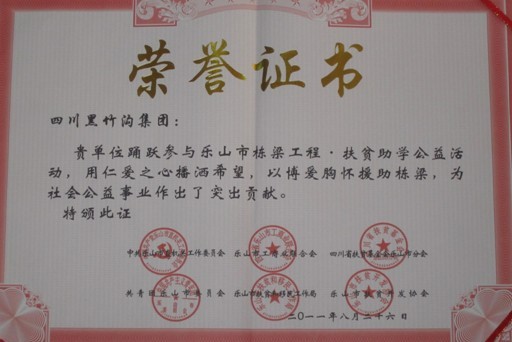 荣誉证书
四川黑竹沟集团：
贵单位踊跃参与乐山市栋梁工程·扶贫助学公益活
动，用仁爱之心播洒希望，以博爱胸怀援助栋梁，为
社会公益事业作出了突出贡献。
特颁此证
中共乐山市直机关工作委员会 乐山市工商业联合会 四川省扶贫基金会乐山市分会
共青团乐山市委员会 乐山市扶贫和移民工作局 乐山市扶贫开发协会
二〇一一年八月二十六日